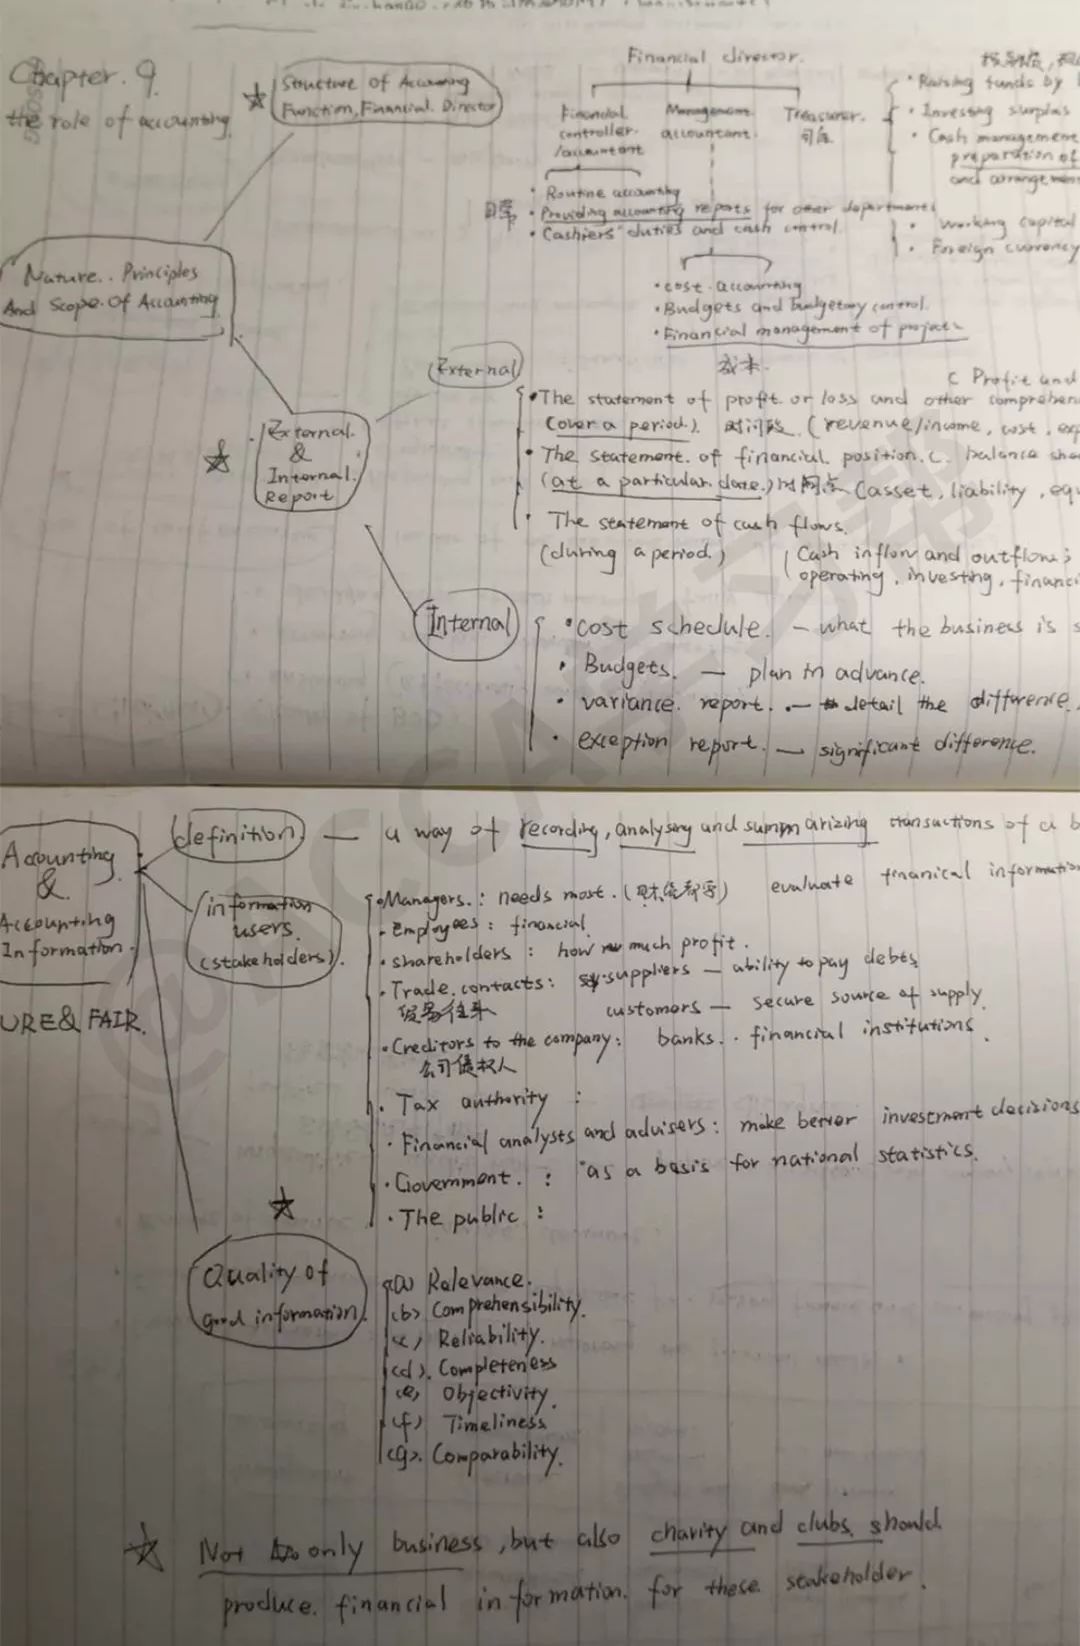 Chapter. 9
the role of accounting.
Structure of Accounting
Function, Financial. Director
Financial director.
Financial
controller
/accountant
Management
accountant.
Treasurer.
司库
• Raising funds by
• Investing surplus
• Cash management
preparation of
and arrangement
• Working capital
• Foreign currency
日常
• Routine accounting
• Providing accounting reports for other departments
• Cashiers' duties and cash control.
• cost accounting
• Budgets and budgetary control.
• Financial management of projects
成本.
Nature.. Principles
And Scope. Of Accounting
External.
&
Internal.
Report
External
• The statement of profit or loss and other comprehen
(over a period.) 时间段. (revenue/income, cost, exp
C Profit and
• The statement. of financial. position. C. balance she
(at a particular. date.) 时间点 (asset, liability, equ
• The statement of cash flows.
(during a period.) (Cash inflow and outflow:
operating, investing, financi
Internal
• cost schedule. — what the business is s
• Budgets. — plan in advance.
• variance. report. — detail the difference.
• exception report. — significant difference.
Accounting
&
Accounting
Information.
URE & FAIR.
definition. — a way of recording, analysing and summarizing transactions of a b
evaluate finanical information
information
users.
(stakeholders).
• Managers. : needs most.
• Employees : financial
• shareholders : how much profit.
• Trade. contacts: suppliers — ability to pay debts
贸易往来 customers — secure source of supply.
• Creditors to the company: banks. . financial institutions.
公司债权人
• Tax authority :
• Financial analysts and advisers : make better investment decisions
• Government. : as a basis for national statistics.
• The public :
Quality of
good information.
(a) Relevance.
(b) Comprehensibility.
(c) Reliability.
(d). Completeness
(e) Objectivity.
(f) Timeliness
(g). Comparability.
Not only business, but also charity and clubs. should
produce. financial information. for these stakeholder.
@ACCA学习帮